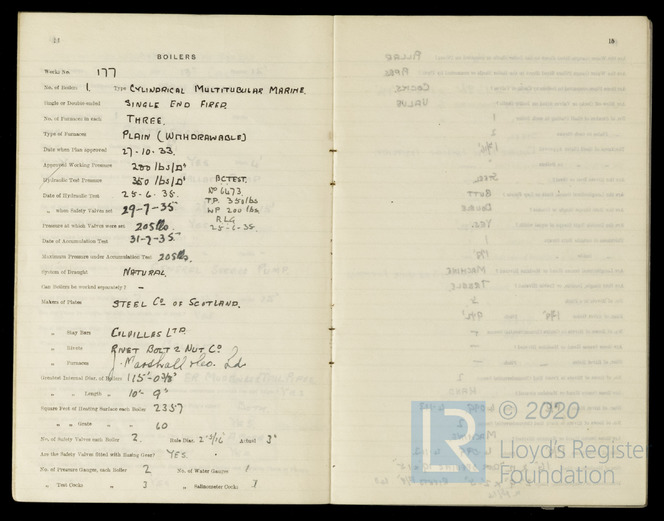 BOILERS
Works No. 177
No. of Boilers 1. Type CYLINDRICAL MULTITUBULAR MARINE.
Single or Double-ended SINGLE END FIRED
No. of Furnaces in each THREE.
Type of Furnaces PLAIN (WITHDRAWABLE)
Date when Plan approved 27-10-33.
Approved Working Pressure 200 lbs/□"
Hydraulic Test Pressure 350 lbs/□" BC TEST.
Date of Hydraulic Test 25-6-35. No 6473
T.P. 350 lbs
„ when Safety Valves set 29-7-35 WP 200 lbs.
RLG
Pressure at which Valves were set 205 lbs. 25-6-35.
Date of Accumulation Test 31-7-35
Maximum Pressure under Accumulation Test 205 lbs.
System of Draught NATURAL.
Can Boilers be worked separately? –
Makers of Plates STEEL Co OF SCOTLAND.
„ Stay Bars COLVILLES LTD.
„ Rivets RIVET BOLT & NUT Co
„ Furnaces J. Marshall & Co. Ld
Greatest Internal Diam. of Boilers
„ „ Length „ 10'- 9"
Square Feet of Heating Surface each Boiler 2357
„ „ Grate „ „ 60
No. of Safety Valves each Boiler 2. Rule Diam. 2-3/16" Actual 3"
Are the Safety Valves fitted with Easing Gear? YES.
No. of Pressure Gauges, each Boiler 2 No. of Water Gauges 1
„ Test Cocks „ 3 „ Salinometer Cocks 1
15
LR
© 2020
Lloyd's Register
Foundation